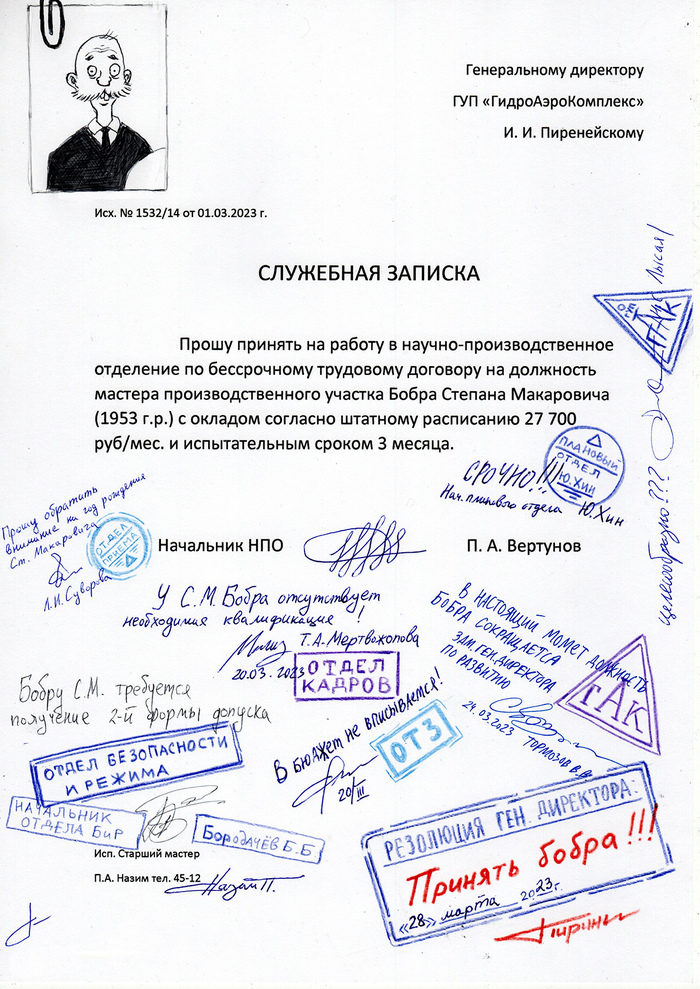 Генеральному директору
ГУП «ГидроАэроКомплекс»
И. И. Пиренейскому
Исх. № 1532/14 от 01.03.2023 г.
СЛУЖЕБНАЯ ЗАПИСКА
Прошу принять на работу в научно-производственное
отделение по бессрочному трудовому договору на должность
мастера производственного участка Бобра Степана Макаровича
(1953 г.р.) с окладом согласно штатному расписанию 27 700
руб/мес. и испытательным сроком 3 месяца.
ГАК
Лысая/
целесообразно???
СРОЧНО!!!
Нач. планового отдела Ю.Хин
ПЛАНОВЫЙ
ОТДЕЛ
Ю.ХИН
Прошу обратить
внимание на год рождения
Ст. Макаровича
Л.И.Суворова
ОТДЕЛ
ПРИЕМА
Начальник НПО
П. А. Вертунов
У С.М.Бобра отсутствует
необходимая квалификация!
Т.А.Мертвожопова
20.03.2023
ОТДЕЛ
КАДРОВ
В НАСТОЯЩИЙ МОМЕТ ДОЛЖНОСТЬ
БОБРА СОКРАЩАЕТСЯ
ЗАМ.ГЕН.ДИРЕКТОРА
ПО РАЗВИТИЮ
24.03.2023
ГАК
Бобру С.М. требуется
получение 2-й формы допуска
ОТДЕЛ БЕЗОПАСНОСТИ
И РЕЖИМА
НАЧАЛЬНИК
ОТДЕЛА БиР
Бородачёв Б.Б
В БЮДЖЕТ НЕ ВПИСЫВАЕТСЯ!
20/III
ОТЗ
Исп. Старший мастер
П.А. Назим тел. 45-12
Назим П.
РЕЗОЛЮЦИЯ ГЕН. ДИРЕКТОРА:
Принять бобра!!!
«28» марта 2023г.